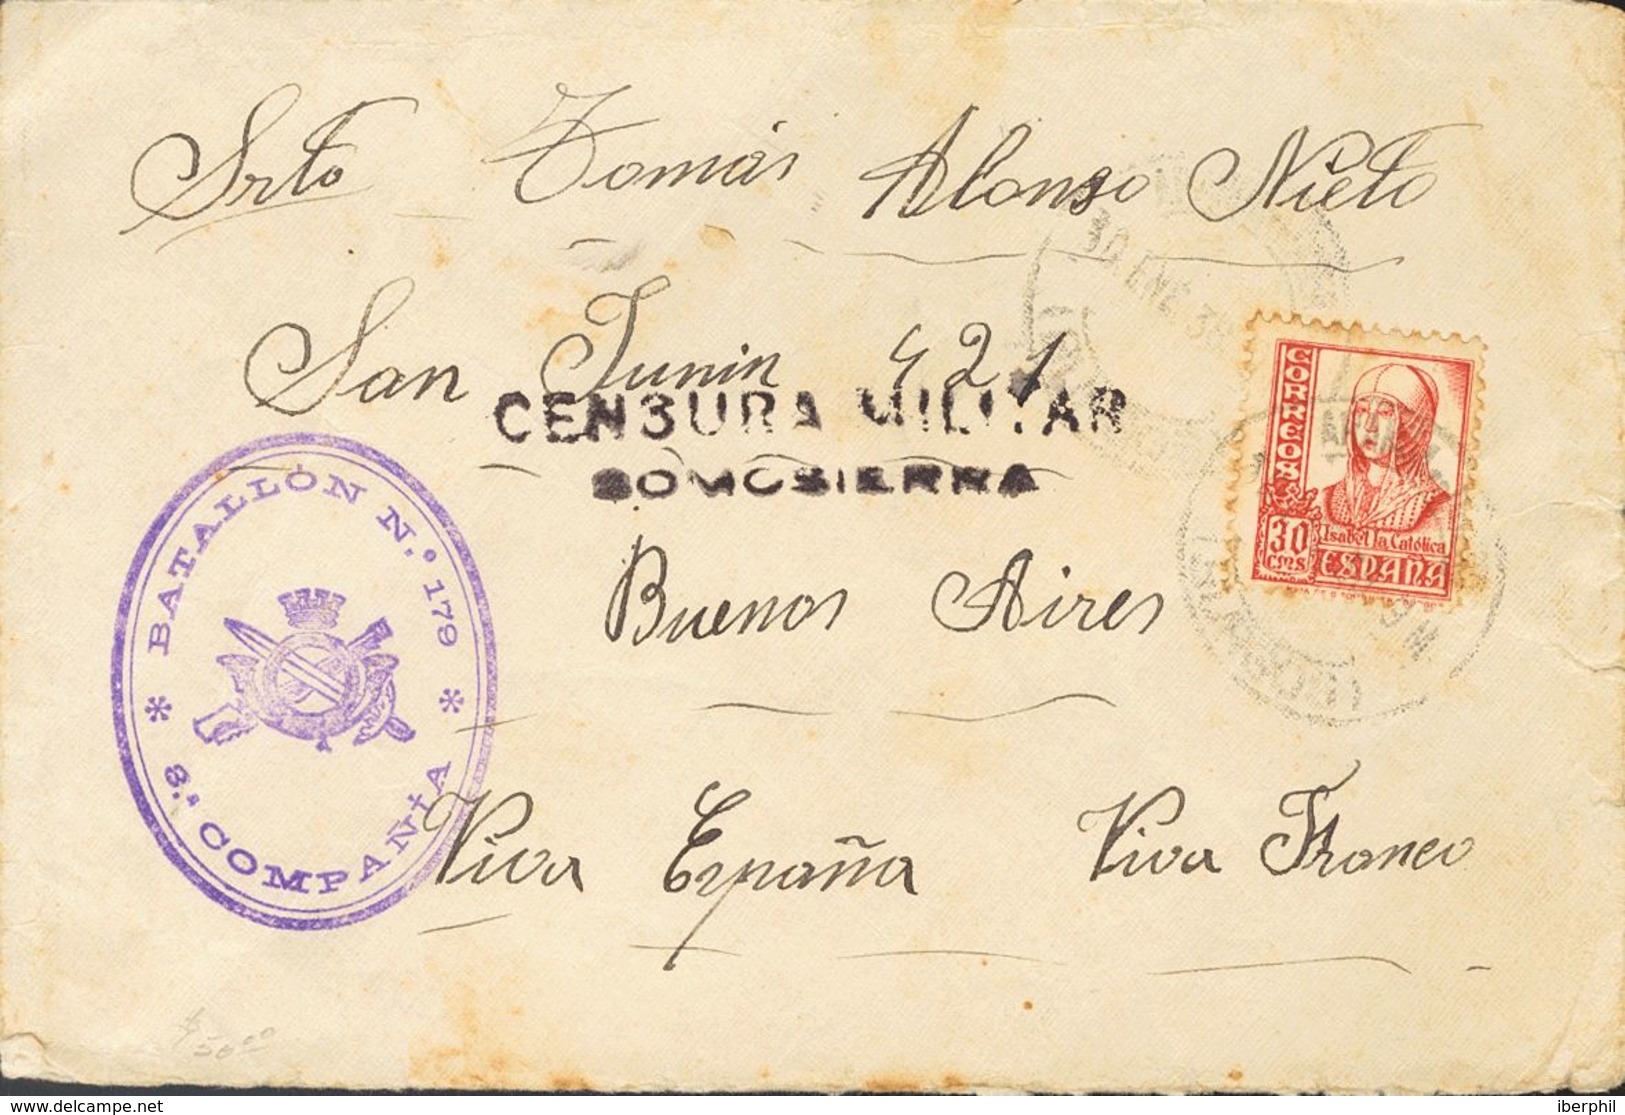 Srto Tomás Alonso Nieto
San Junin 421
CENSURA MILITAR
SOMOSIERRA
Buenos Aires
Viva España Viva Franco
BATALLÓN N.º 179
8.ª COMPAÑIA
30 ENE 38
CORREOS
30 CMS
Isabel la Católica
ESPAÑA
50 00
delcampe.net
iberphil